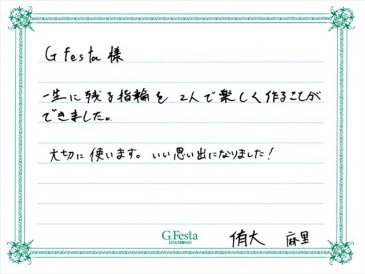 G festa 様
一生に残る指輪を 2人で楽しく作ることが
できました。
大切に使います。いい思い出になりました！
G.Festa
DIAMOND
侑大 麻里